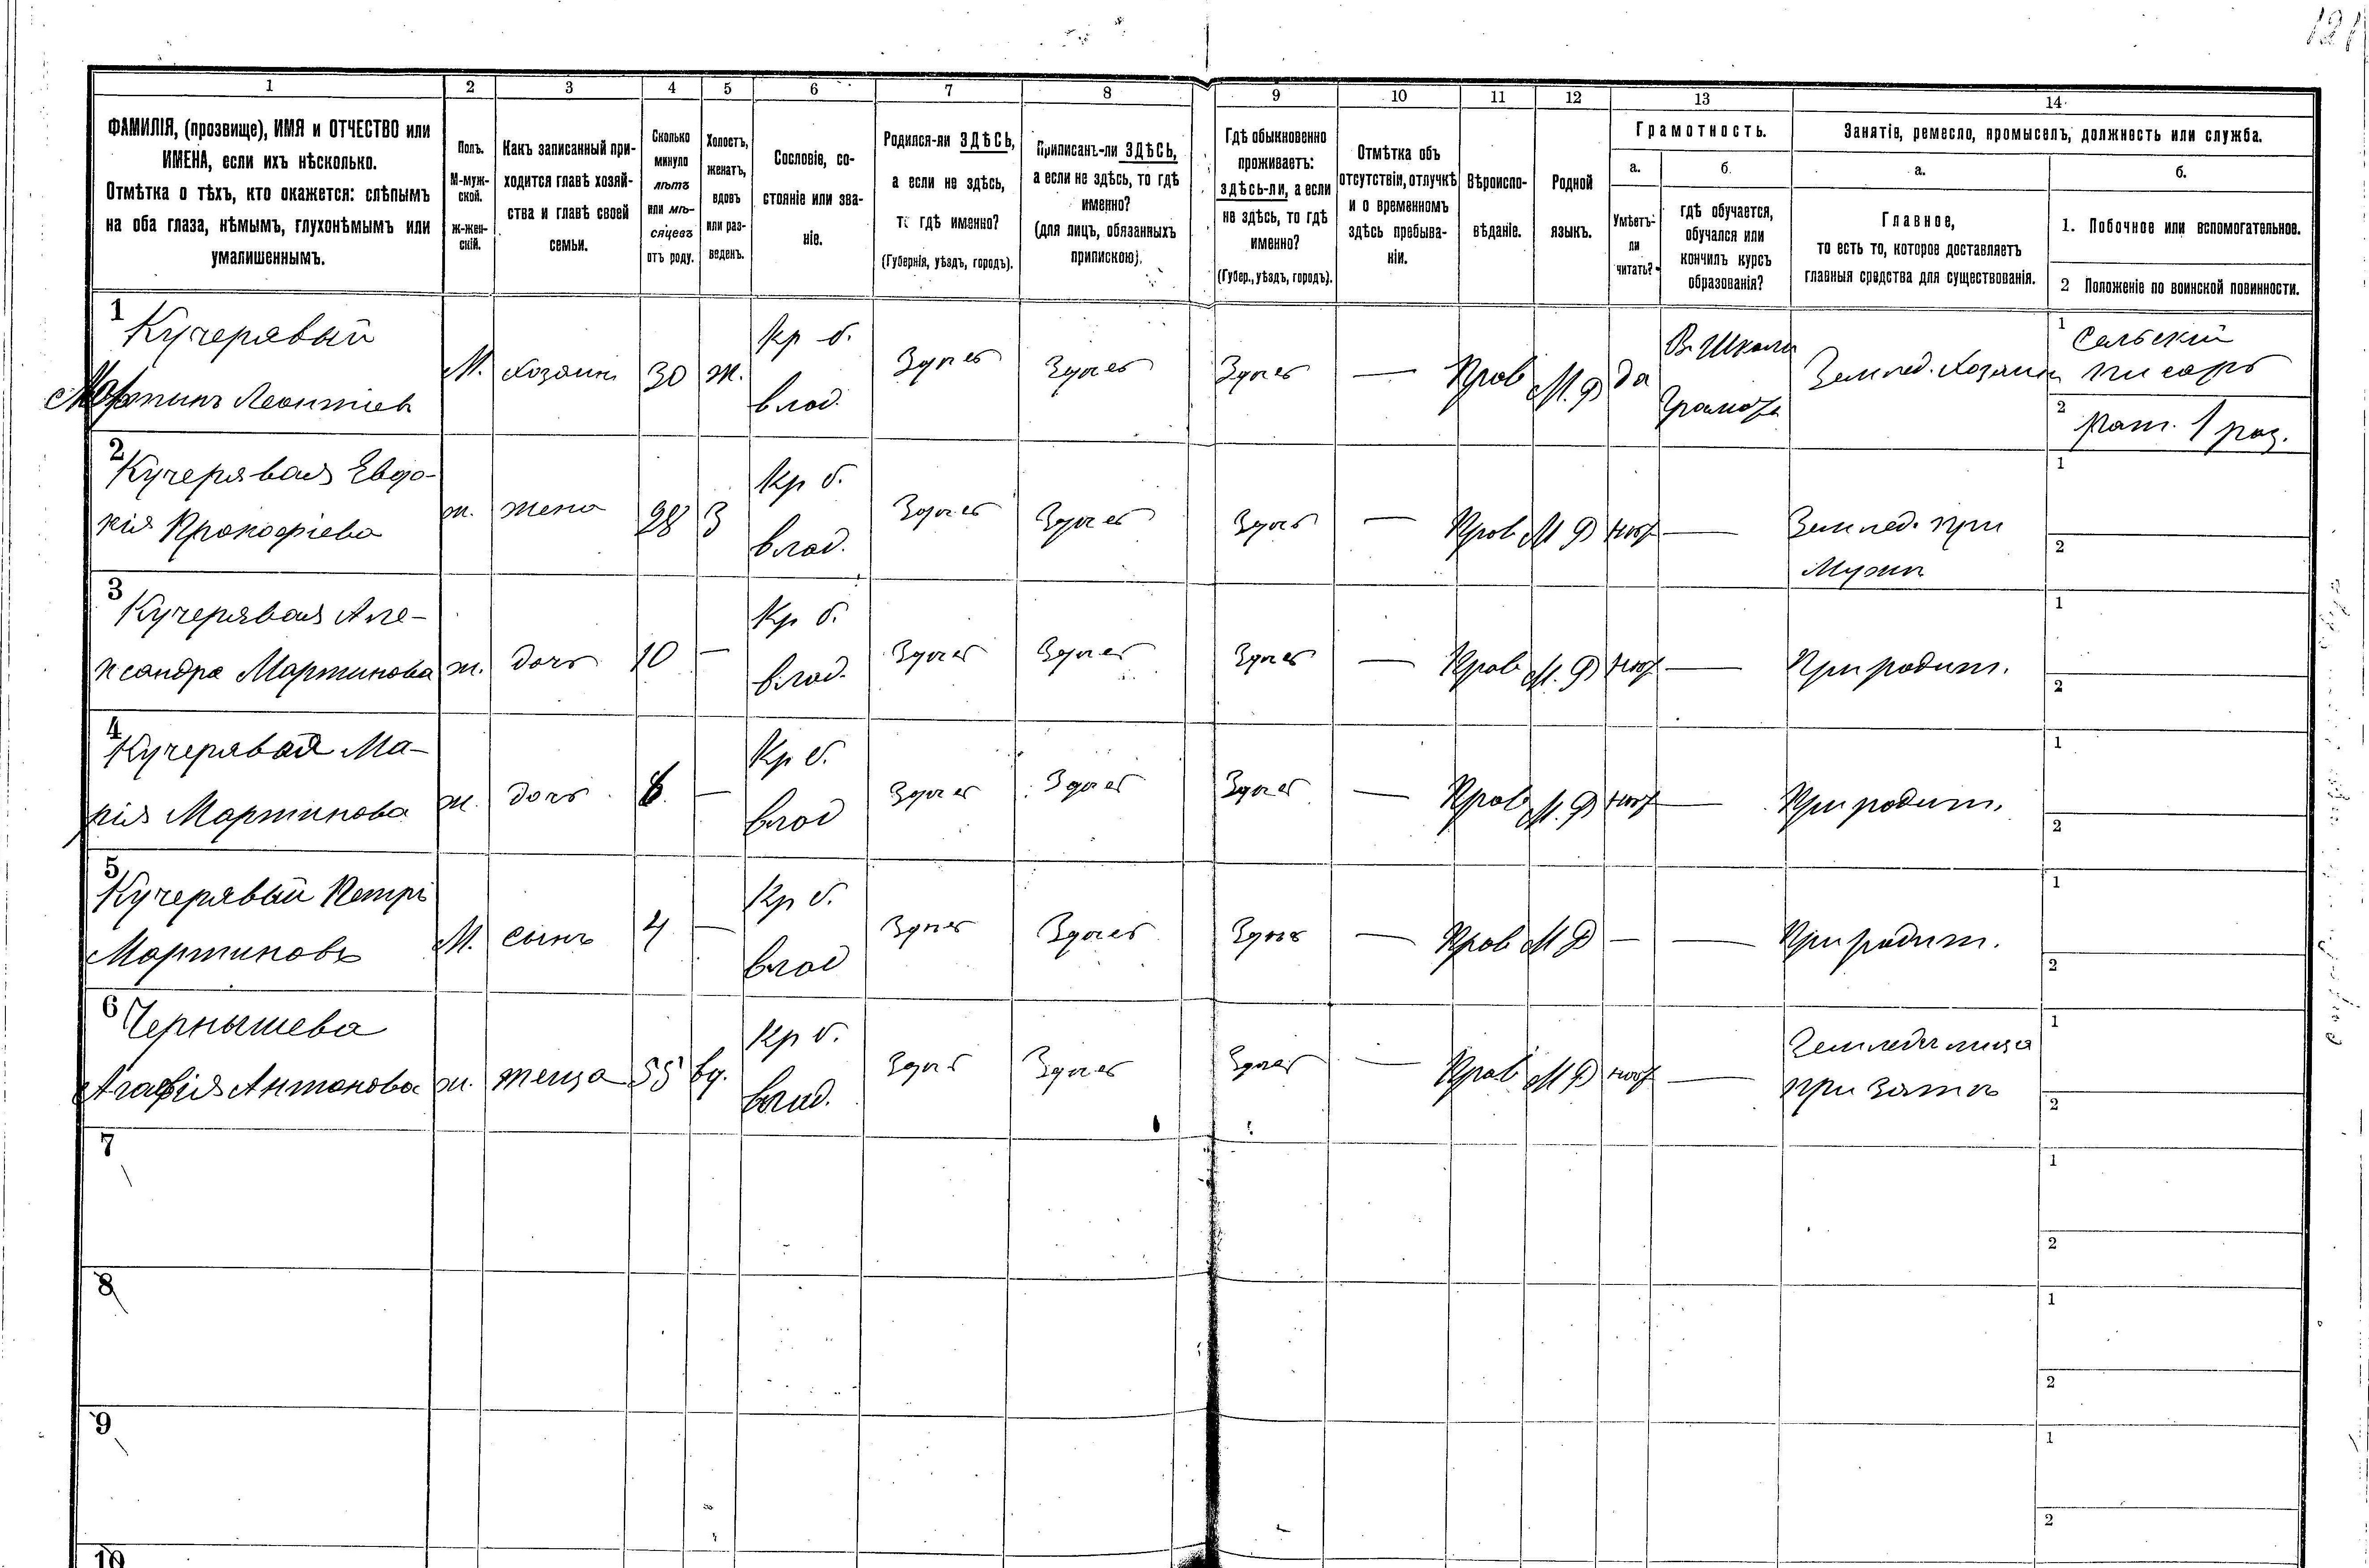 121
1 2 3 4 5 6 7 8 9 10 11 12 13 14
ФАМИЛІЯ, (прозвище), ИМЯ и ОТЧЕСТВО или
ИМЕНА, если ихъ нѣсколько.
Отмѣтка о тѣхъ, кто окажется: слѣпымъ
на оба глаза, нѣмымъ, глухонѣмымъ или
умалишеннымъ.
Полъ.
М-муж-
ской.
Ж-жен-
скій.
Какъ записанный при-
ходится главѣ хозяй-
ства и главѣ своей
семьи.
Сколько
минуло
лѣтъ
или мѣ-
сяцевъ
отъ роду.
Холостъ,
женатъ,
вдовъ
или раз-
веденъ.
Сословіе, со-
стояніе или зва-
ніе.
Родился-ли ЗДѢСЬ,
а если не здѣсь,
то гдѣ именно?
(Губернія, уѣздъ, городъ).
Приписанъ-ли ЗДѢСЬ,
а если не здѣсь, то гдѣ
именно?
(для лицъ, обязанныхъ
припискою).
Гдѣ обыкновенно
проживаетъ:
здѣсь-ли, а если
не здѣсь, то гдѣ
именно?
(Губер., уѣздъ, городъ).
Отмѣтка объ
отсутствіи, отлучкѣ
и о временномъ
здѣсь пребыва-
ніи.
Вѣроиспо-
вѣданіе.
Родной
языкъ.
Грамотность.
а.
Умѣетъ-
ли
читать?
б.
гдѣ обучается,
обучался или
кончилъ курсъ
образованія?
Занятіе, ремесло, промыселъ, должность или служба.
а.
Главное,
то есть то, которое доставляетъ
главныя средства для существованія.
б.
1. Побочное или вспомогательное.
2 Положеніе по воинской повинности.
1
Кучерявый
Мартинъ Леонтіев
М. хозяинъ 30 ж.
Кр б.
влад.
Здѣсь Здѣсь Здѣсь — Прав М. Р да
В. Школи
Грамотѣ
Землед. Хозяинъ
1 Сельскій
писарь
2 Рат. 1 раз.
2
Кучерявая Евдо-
кія Прокофіева
ж. жена 28 З
Кр б.
влад.
Здѣсь Здѣсь Здѣсь — Прав М Р нѣт —
Землед. при
Мужѣ
1
2
3
Кучерявая Але-
ксандра Мартинова
ж. дочь 10 —
Кр б.
влад.
Здѣсь Здѣсь Здѣсь — Прав М. Р нѣт — При родит.
1
2
4
Кучерявая Ма-
рія Мартинова
ж. дочь —
Кр б.
влад
Здѣсь Здѣсь Здѣсь — Прав М. Р нѣт — При родит.
1
2
5
Кучерявый Петръ
Мартиновъ
М. сынъ 4 —
Кр б.
влад
Здѣсь Здѣсь Здѣсь — Прав М Р — — При родит.
1
2
6
Чернышева
Агафія Антонова
ж. теща 55 вд.
Кр б.
влад.
Здѣсь Здѣсь Здѣсь — Прав М Р нѣт —
Земледѣлица
при зятѣ
1
2
7
1
2
8
1
2
9
1
2
10